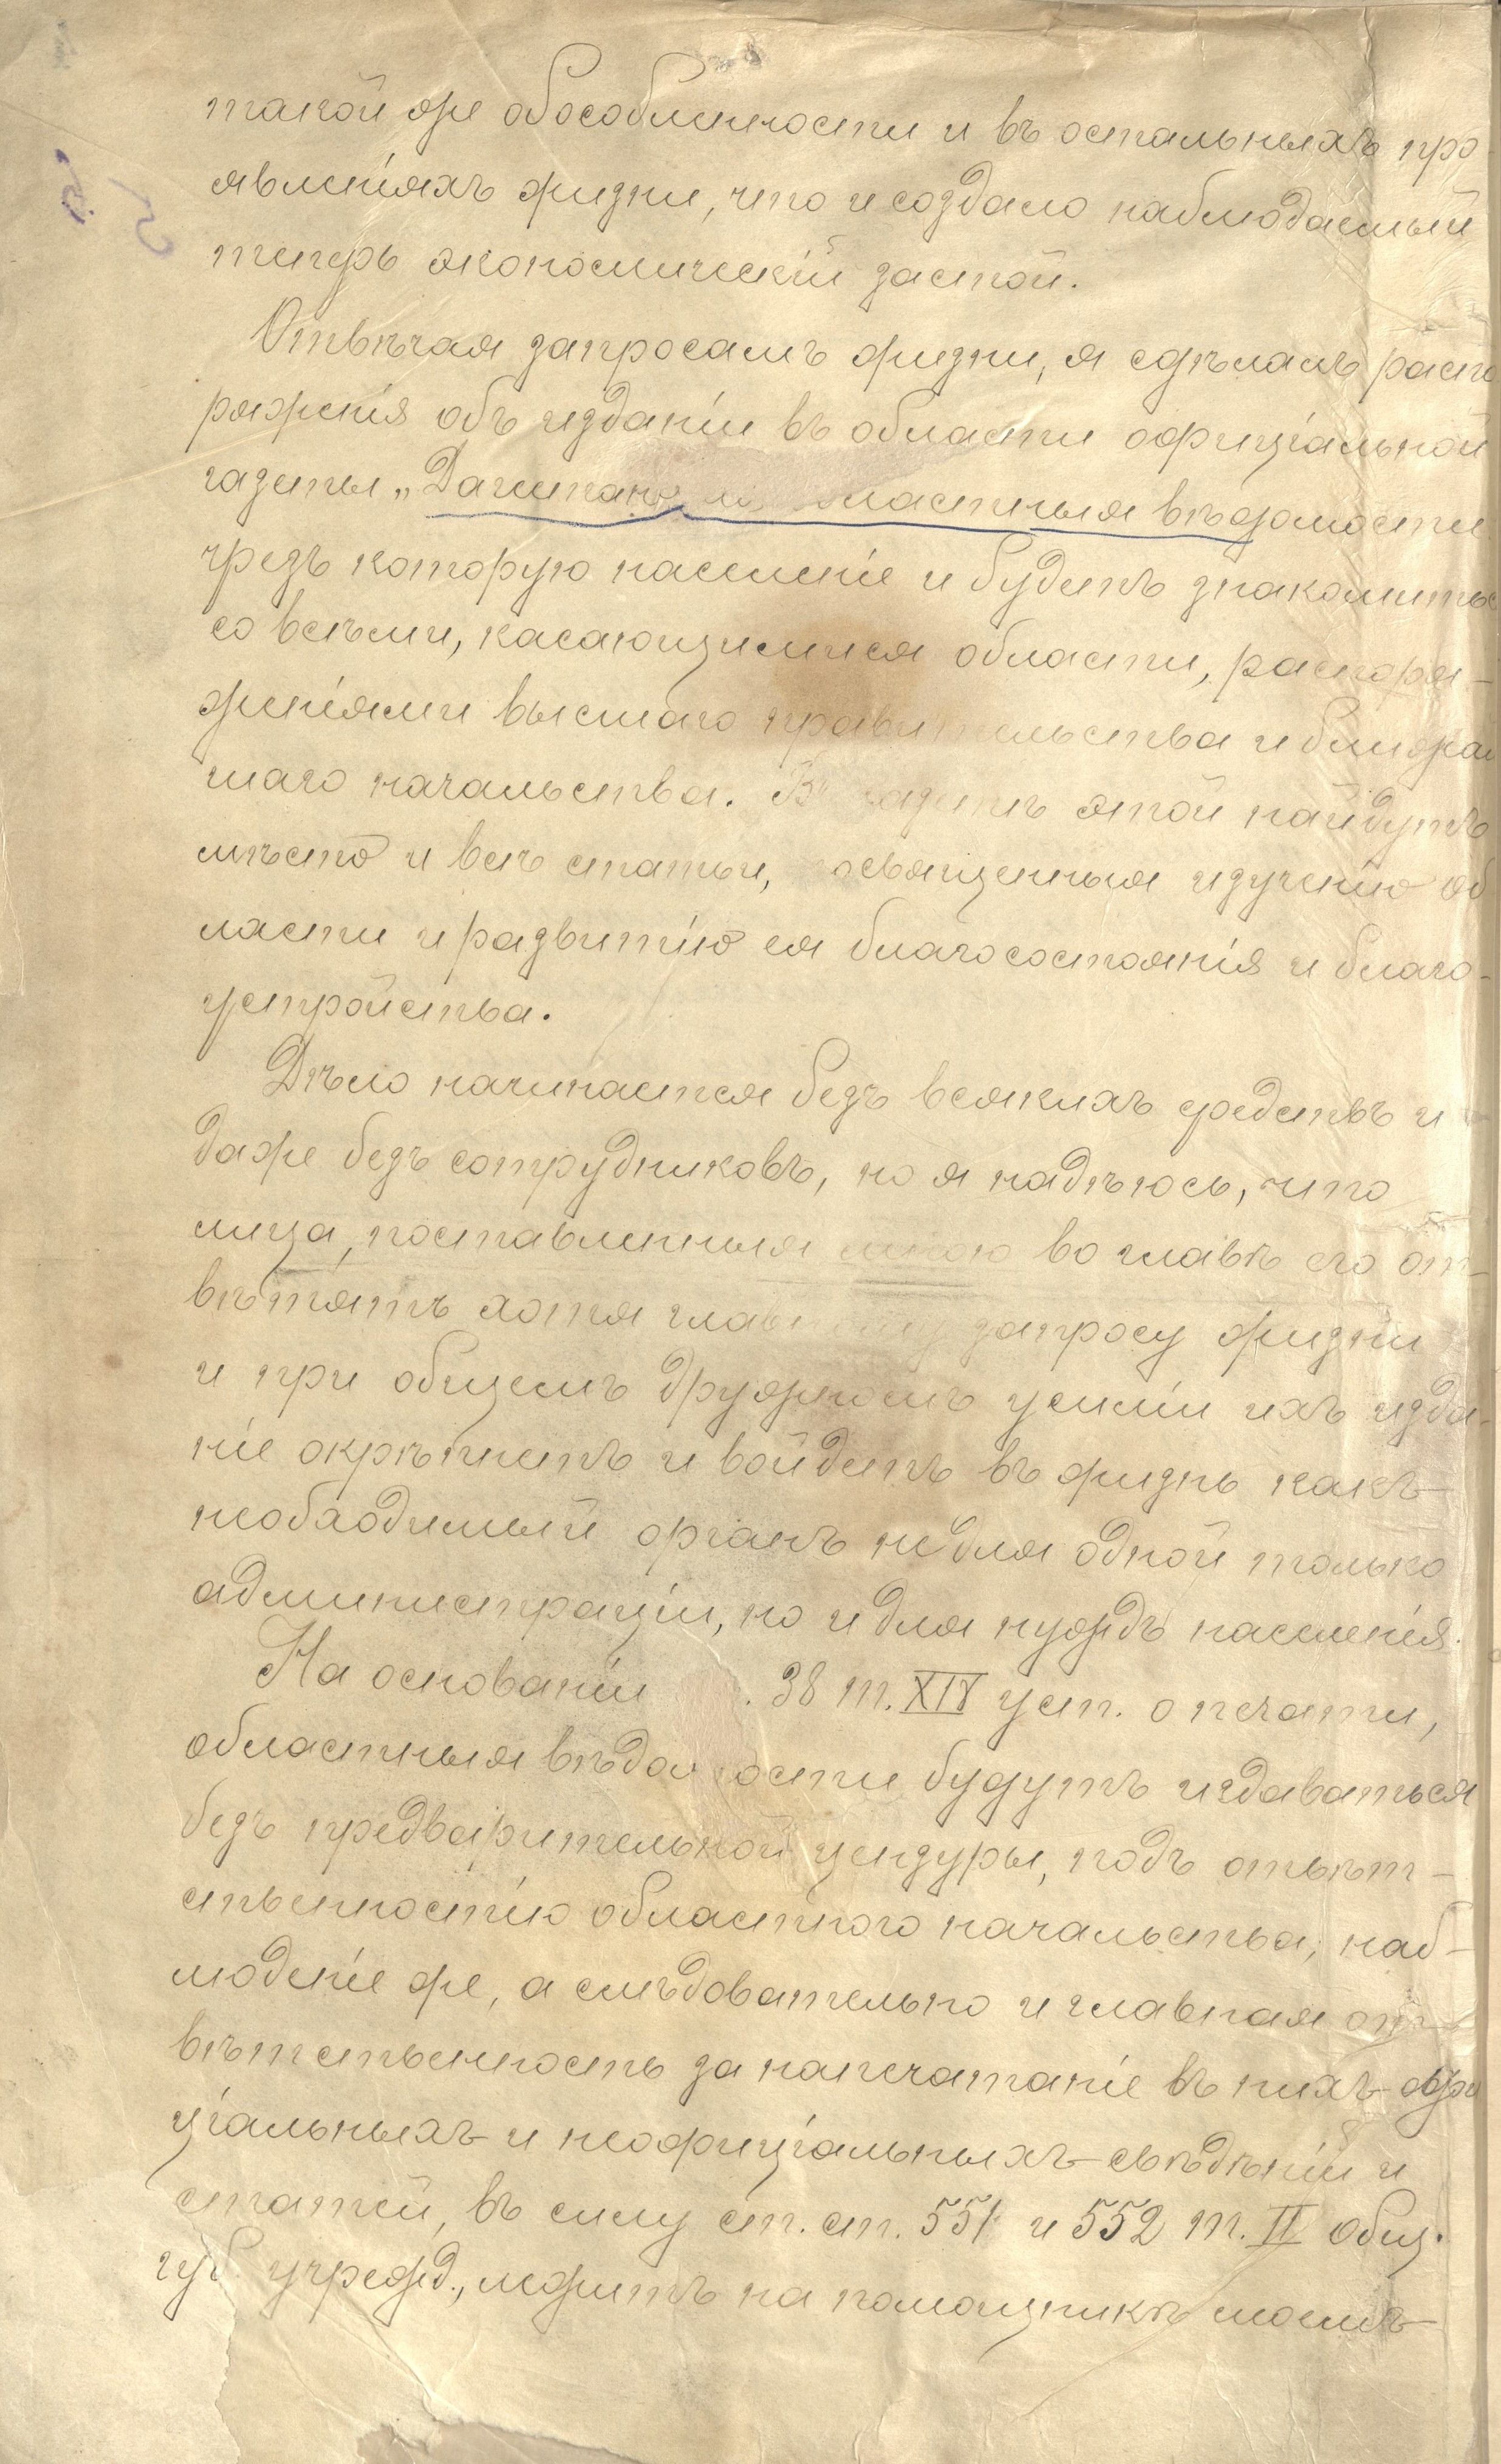 такой же обособленности и въ остальныхъ про-
явленіяхъ жизни, что и создало наблюдаемый
теперь экономическій застой.
Отвѣчая запросамъ жизни, я сдѣлалъ распо
ряженія объ изданіи въ области офиціальной
газеты „Дагестанскія областныя вѣдомости
чрезъ которую населеніе и будетъ знакомиться
со всѣми, касающимися области, распоря-
женіями высшаго правительства и ближай
шаго начальства. Въ газетѣ этой найдутъ
мѣсто и всѣ статьи, посвященныя изученію об
ласти и развитію ея благосостоянія и благо-
устройства.
Дѣло начинается безъ всякихъ средствъ и
даже безъ сотрудниковъ, но я надѣюсь, что
лица, поставленныя мною во главѣ его от-
вѣтятъ хотя главному запросу жизни
и при общемъ дружномъ усиліи ихъ изда-
ніе окрѣпнетъ и войдетъ въ жизнь какъ
необходимый органъ не для одной только
администраціи, но и для нуждъ населенія.
На основаніи 38 т. XIV уст. о печати,
областныя вѣдомости будутъ издаваться
безъ предварительной цензуры, подъ отвѣт-
ственностію областного начальства; наб-
люденіе же, а слѣдовательно и главная от-
вѣтственность за напечатаніе въ нихъ офи
ціальныхъ и неофиціальныхъ свѣдѣній и
статей, въ силу ст. ст. 551 и 552 т. II общ.
губ. учрежд., лежитъ на помощникѣ моемъ
5